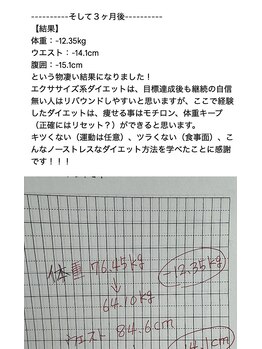 ----------そして３ヶ月後----------
【結果】
体重：-12.35kg
ウエスト：-14.1cm
腹囲：-15.1cm
という物凄い結果になりました！
エクササイズ系ダイエットは、目標達成後も継続の自信
無い人はリバウンドしやすいと思いますが、ここで経験
したダイエットは、痩せる事はモチロン、体重キープ
（正確にはリセット？）ができると思います。
キツくない（運動は任意）、ツラくない（食事面）、こ
んなノーストレスなダイエット方法を学べたことに感謝
です！！！
体重 76.45kg -12.35kg
↓
64.10kg
ウエスト 84.6cm
-14.1cm